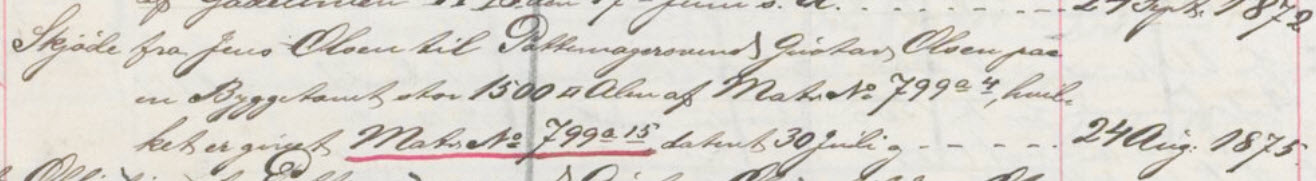 af Gadelinien No 13 dat. 17 Juni s. A. - - - - - - - - 24 Sept. 1872
Skjøde fra Jens Olsen til Pottemagersvend Gustav Olsen paa
en Byggetomt stor 1500 □ Alen af Matr. No 799 a 4, hvil-
ket er givet Matr. No 799 a 15, datert 30 Juli - - - - - 24 Aug. 1875